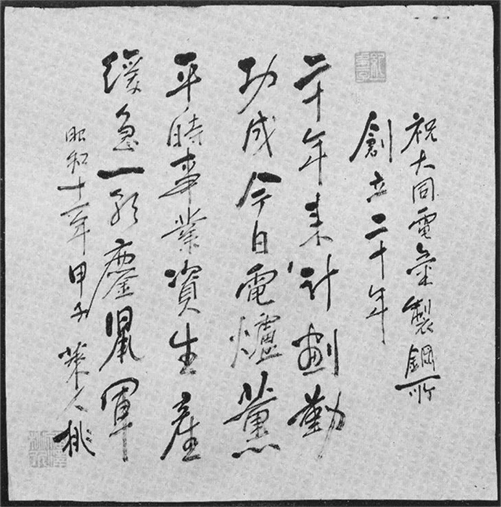 祝大同電氣製鋼所
創立二十年
二十年来計劃勤
功成今日電爐薫
平時事業資生産
緩急一朝鏖軍
昭和十一年甲子人桃